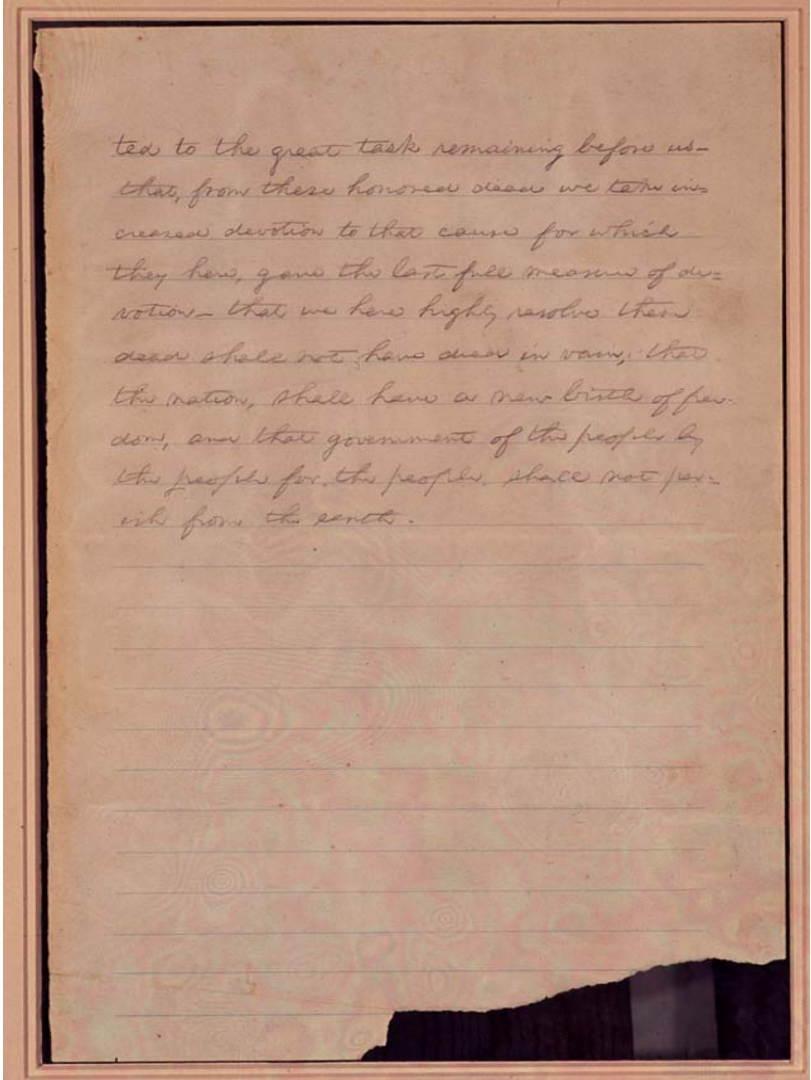 ted to the great task remaining before us—
that, from these honored dead we take in-
creased devotion to that cause for which
they here, gave the last full measure of de-
votion— that we here highly resolve these
dead shall not have died in vain; that
the nation, shall have a new birth of free-
dom, and that government of the people by
the people for the people. shall not per-
ish from the earth.